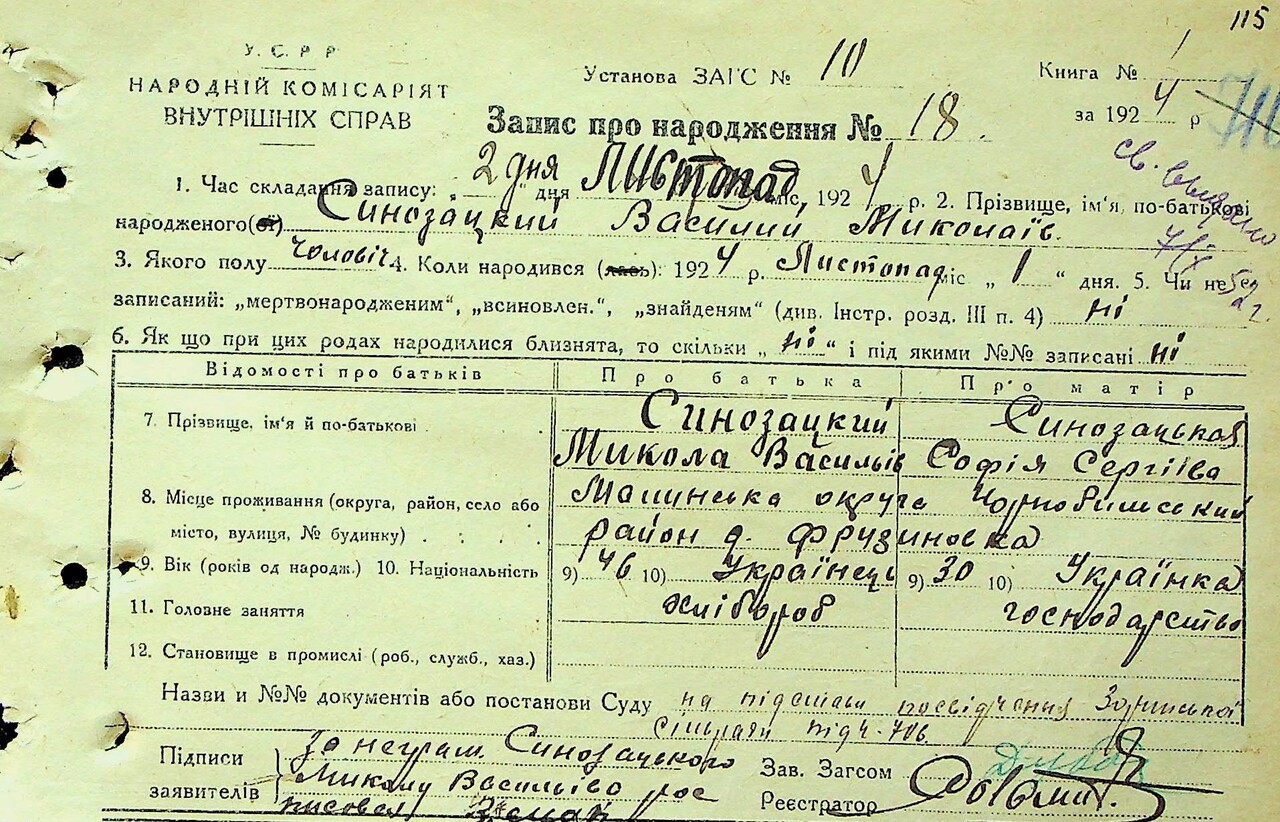 115
У.С.Р.Р.
НАРОДНІЙ КОМІСАРІЯТ
ВНУТРІШНІХ СПРАВ
Установа ЗАГС № 10
Книга № 1
за 1924 р
Запис про народження № 18.
1. Час складання запису: „2 дня“ дня Листопад міс, 1924 р. 2. Прізвище, ім'я, по-батькові
народженого(ої) Синозацкий Василий Миколаїв.
3. Якого полу чоловіч 4. Коли народився (лась): 1924 р. Листопад міс „ 1 “ дня. 5. Чи не
записаний: „мертвонародженим“, „всиновлен.“, „знайденям“ (див. Інстр. розд. III п. 4) ні
6. Як що при цих родах народилися близнята, то скільки „ ні “ і під якими №№ записані ні
Відомості про батьків Про батька Про матір
7. Прізвище, ім'я й по-батькові Синозацкий Синозацькая
Микола Васильів Софія Сергіїва
8. Місце проживання (округа, район, село або Малинська округа Чорнобильський
місто, вулиця, № будинку) район д. Фрузиновка
9. Вік (років од народж.) 10. Національність 9) 46 10) Українець 9) 30 10) Українка
11. Головне заняття хлібороб господарство
12. Становище в промислі (роб., служб., хаз.)
Назви и №№ документів або постанови Суду на підставі посвідчення
Підписи за неграм. Синозацкого
заявителів Миколу Васильіво рос
Зав. Загсом
Реєстратор